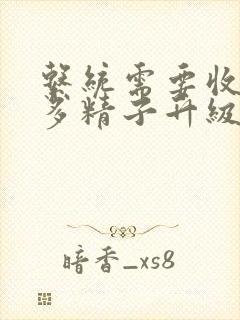 系统需要收
多精子升级
暗香_xs8